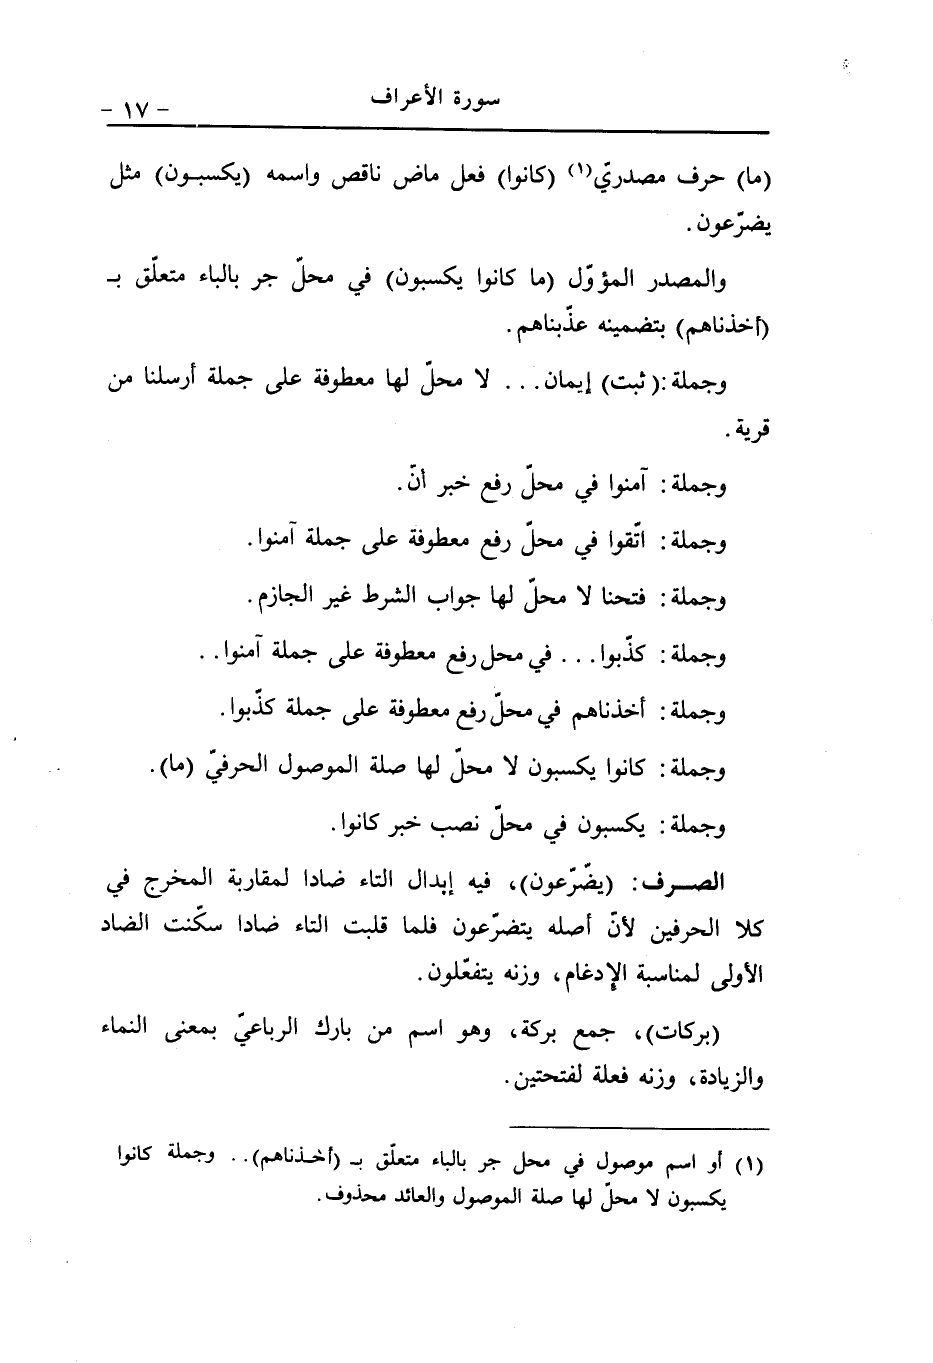 سورة الأعراف
- ١٧ -
(ما) حرف مصدريّ(١) (كانوا) فعل ماض ناقص واسمه (يكسبون) مثل
يضرّعون.
والمصدر المؤوّل (ما كانوا يكسبون) في محلّ جر بالباء متعلّق بـ
(أخذناهم) بتضمينه عذّبناهم.
وجملة :( ثبت) إيمان... لا محلّ لها معطوفة على جملة أرسلنا من
قرية.
وجملة: آمنوا في محلّ رفع خبر أنّ.
وجملة: اتّقوا في محلّ رفع معطوفة على جملة آمنوا.
وجملة: فتحنا لا محلّ لها جواب الشرط غير الجازم.
وجملة: كذّبوا... في محل رفع معطوفة على جملة آمنوا..
وجملة: أخذناهم في محلّ رفع معطوفة على جملة كذّبوا.
وجملة: كانوا يكسبون لا محلّ لها صلة الموصول الحرفيّ (ما).
وجملة: يكسبون في محلّ نصب خبر كانوا.
الصرف: (يضّرّعون)، فيه إبدال التاء ضادا لمقاربة المخرج في
كلا الحرفين لأنّ أصله يتضرّعون فلما قلبت التاء ضادا سكّنت الضاد
الأولى لمناسبة الإدغام، وزنه يتفعّلون.
(بركات)، جمع بركة، وهو اسم من بارك الرباعيّ بمعنى النماء
والزيادة، وزنه فعلة لفتحتين.
(١) أو اسم موصول في محل جر بالباء متعلّق بـ (أخذناهم).. وجملة كانوا
يكسبون لا محلّ لها صلة الموصول والعائد محذوف.